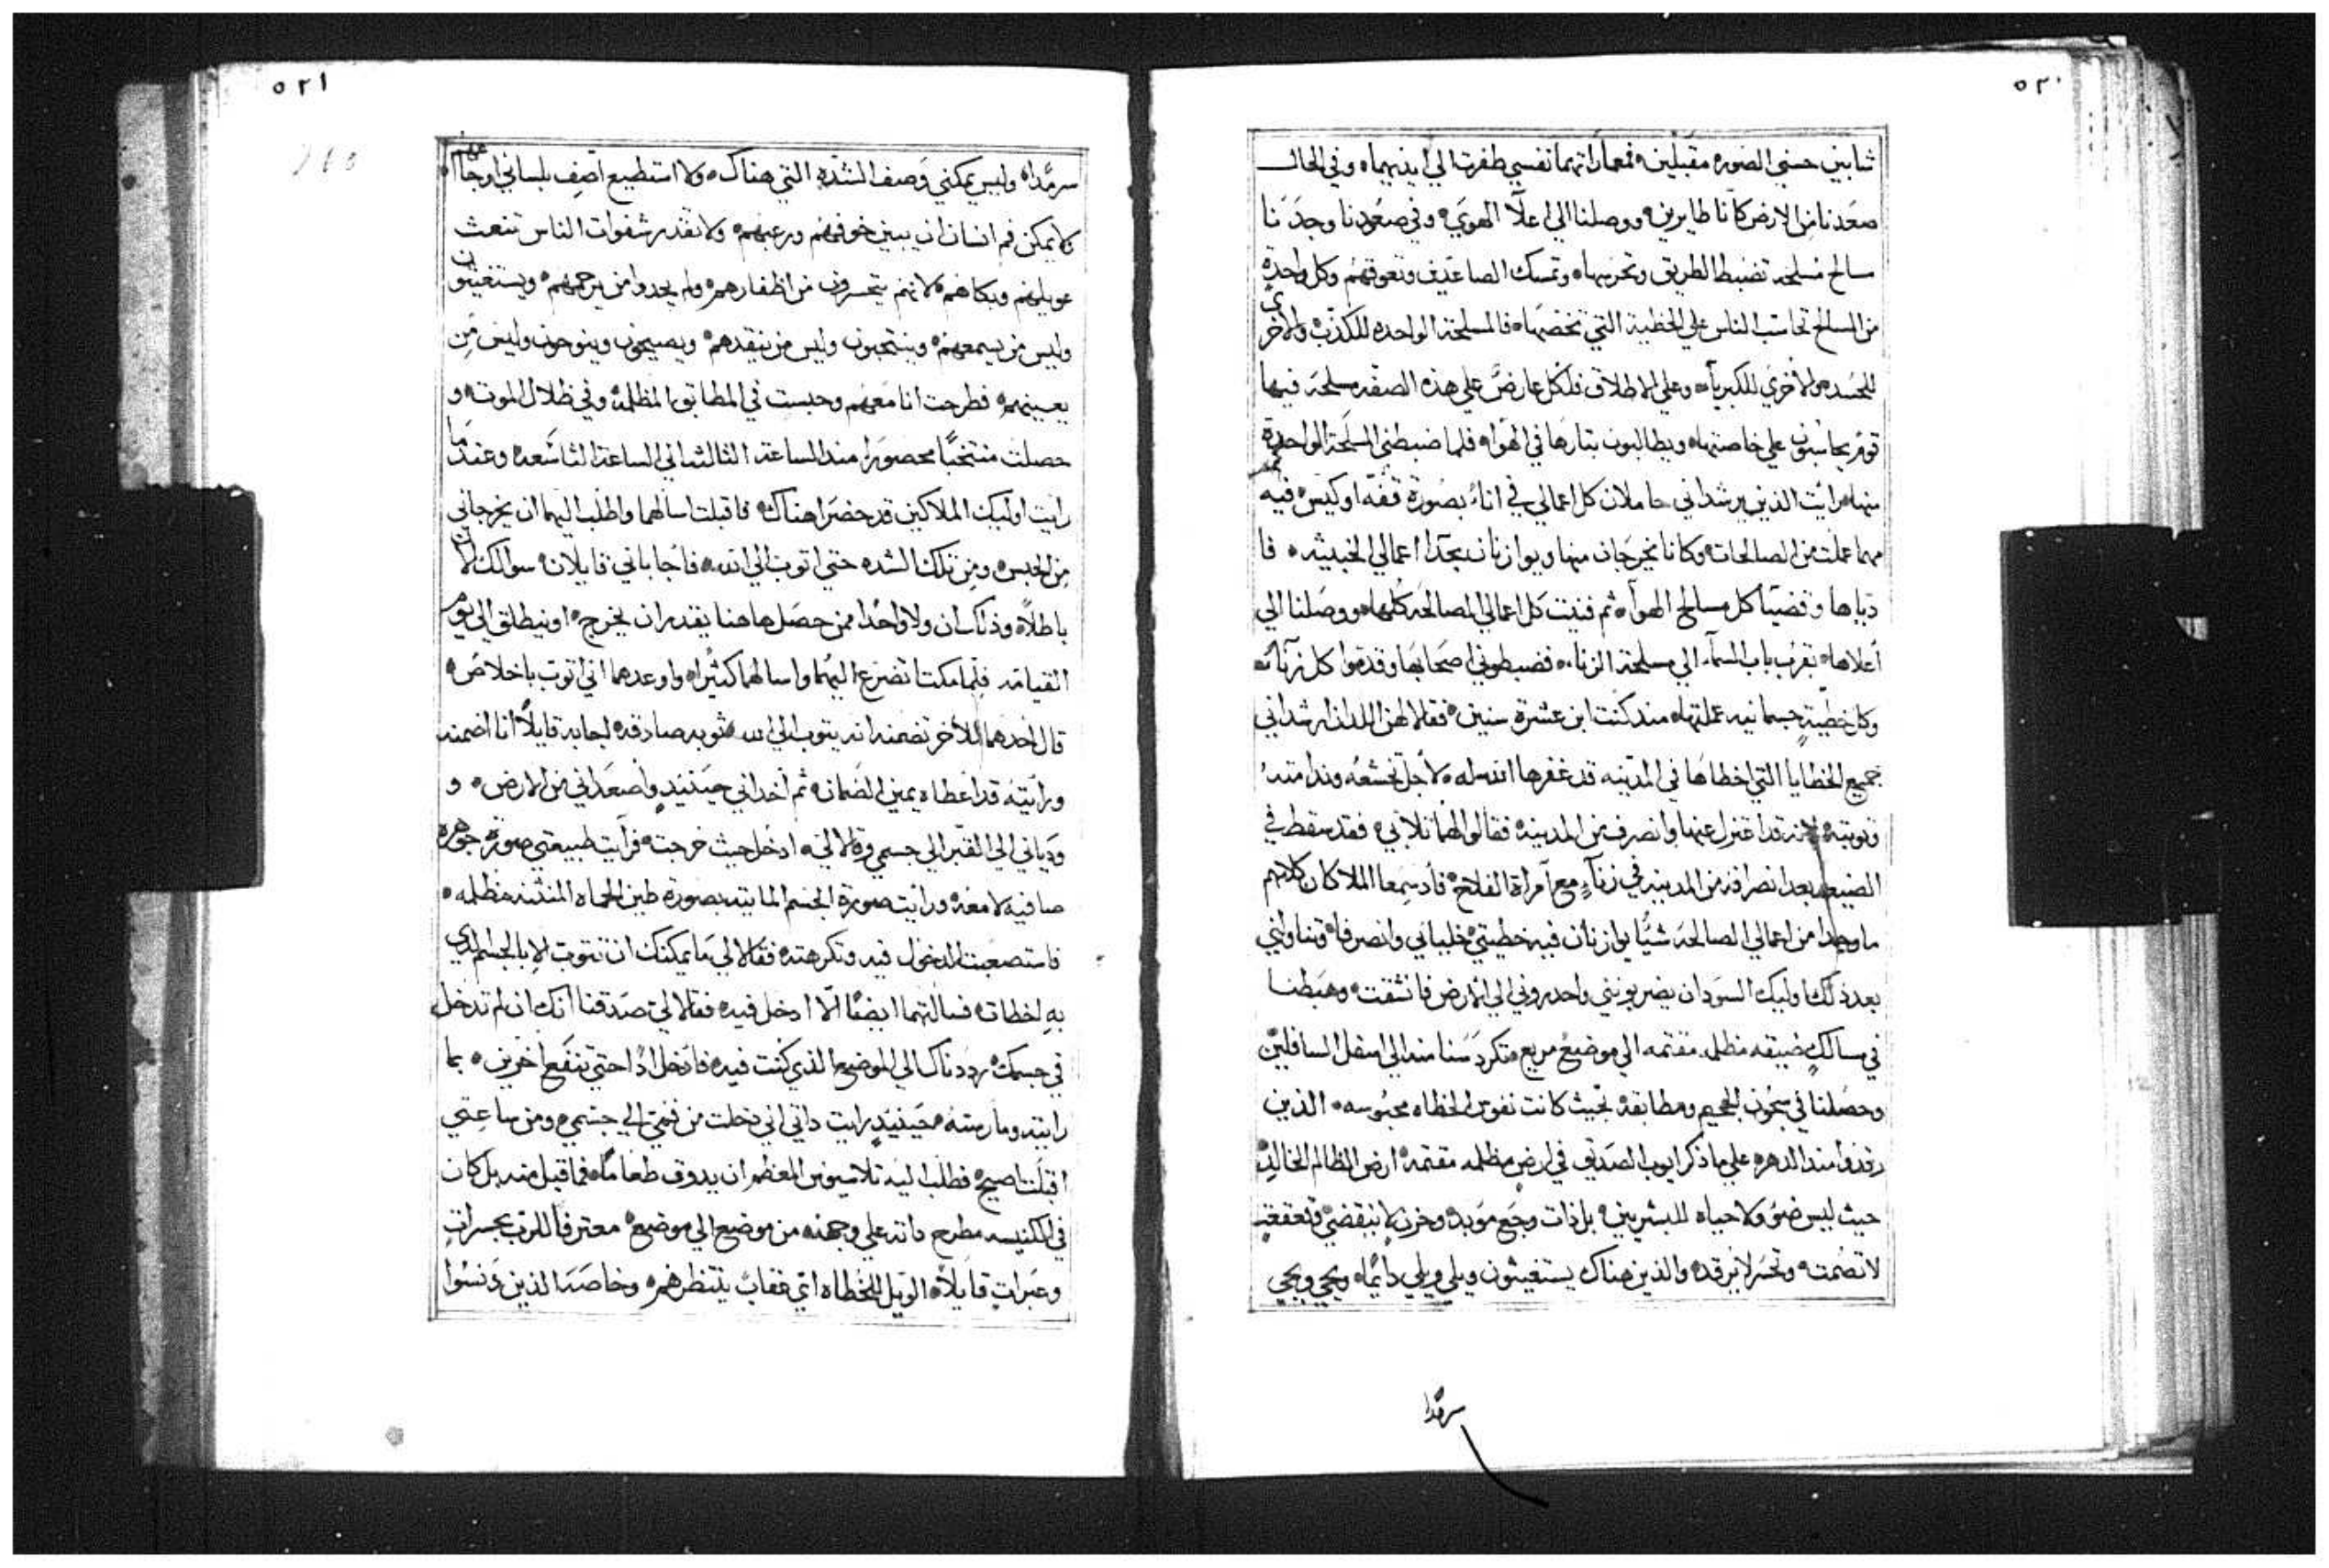 ٥٢٠
شابين حسني الصوره مقبلين فمعما راتهما نفسي طفرت الي ايديهما وفي الحال
صعدنا من الارض كاننا طايرين ووصلنا الي اعلا الهوي وفي صعودنا وجدنا
مسالح مسلحه تضبط الطريق وتحرسها وتمسك الصاعدين وتعوقهم وكل واحدة
من المسالح تحاسب الناس علي الخطية التي تخصها فالمسلحة الواحده للكذب والاخري
للحسد والاخري للكبريا وعلي الاطلاق فلكل عارض علي هذه الصفه مسلحه فيها
قوم يحاسبون علي خاصتها ويطالبون بتارها في الهوا فلما ضبطني المسلحة الواحدة
منها رايت الذين يرشداني حاملان كل اعمالي في اناء بصورة قفه او كيس فيه
مهما عملت من الصالحات وكانا يخرجان منها ويوازنان بحدا اعمالي الخبيثه فا
دياها وقضينا كل مسالح الهوآ ثم فنيت كل اعمالي الصالحه كلها ووصلنا الي
اعلاها بقرب باب السمآ الي مسلحة الزنا فضبطوني اصحابها وقدموا كل زنآئه
وكل خطيةٍ جسمانيه عملتها مند كنت ابن عشرة سنين فقالا لهن اللدان ارشداني
جميع الخطايا التي اخطاها في المدينه قد غفرها الله له لاجل تخشعه وندامته
وتوبته لانه قد اعتزل عنها وانصرف من المدينة فقالوا لهما ثلاثي فقد سقط في
الضيعه بعد انصرافه من المدينه في زنآءٍ مع امراة الفلاح فاد سمعا الملاكان كلامهم
ما وجدا من اعمالي الصالحه شيًا يوازنان فيه خطيتي خلياني وانصرفا وتناولني
بعد ذلك اوليك السودان يضربونني واحدروني الي الارض فانشقت وهبطنا
في مسالكٍ ضيقه مظلمه مقتمه الي موضع مريع متكردسنا منه الي اسفل السافلين
وحصلنا في سجون الجحيم ومطابقه بحيث كانت نفوس الخطاه محبوسه الذين
رقدوا مند الدهر علي ما ذكر ايوب الصديق في ارض مظلمه مقتمه ارض الظلام الخالد
حيث ليس ضو ولا حياه للبشريين بل ذات وجع موبد وحزن لا ينقضي وتقعقع
لا تصمت وتحسر لا يرقد والذين هناك يستغيثون ويلي ويلي دايما ويحي ويحي
سرمدا
٥٢١
سرمدا وليس يمكني وصف الشده التي هناك ولا استطيع اصف بلساني اوجاعهم
ولا يمكن فم انسان ان يبين خوفهم ورعبهم ولا تقدر شفوات الناس تنعت
عويلهم وبكاهم لانهم يتحسرون من اظفارهم ولم يجدوا من يرحمهم ويستغيثون
وليس من يسمعهم وينتحبون وليس من ينقدهم ويصيحون وينوحون وليس من
يعينهم فطرحت انا معهم وحبست في المطابق المظلمه وفي ظلال الموت و
حصلت منتحبًا محصورا مند الساعة الثالثه الي الساعة التاسعه وعند ما
رايت اوليك الملاكين قد حضرا هناك فاقبلت اسالهما واطلب اليهما ان يخرجاني
من الحبس ومن تلك الشده حتي اتوب الي الله فاجاباني قايلان سوالك كان
باطلا وذلك ان ولا واحدا ممن حصل هاهنا يقدر ان يخرج او ينطلق الي يوم
القيامه فلما مكتت اتضرع اليهما واسالهما كثيرا واوعدهما اني اتوب باخلاص
قال احدهما للاخر تضمنه انه يتوب الي الله توبه صادقه اجابه قايلا انا اضمنه
ورايته قد اعطاه يمين الضمان ثم اخداني حينيدٍ واصعداني من الارض و
ودياني الي القبر الي جسمي وقالا لي ادخل حيث خرجت فرايت طبيعتي صورة جوهره
صافيه لامعه ورايت صورة الجسم المايته بصورة طين الحماه المنتنه مظلمه
فاستصعبت الدخول فيه وتكرهته فقالا لي ما يمكنك ان تتوب الا بالجسم الدي
به اخطات فسالتهما ايضًا الا ادخل فيه فقالا لي صدقنا انك ان لم تدخل
في جسمك رددناك الي الموضع الذي كنت فيه فادخل ادًا حتي تنفع اخرين بما
رايته ومارسته فحينيدٍ رايت داتي اني دخلت من فمي الي جسمي ومن ساعتي
اقبلت اصيح فطلب اليه تلاسيوس المعظم ان يدوق طعاما فما قبل منه بل كان
في الكنيسه مطرح داته علي وجهه من موضع الي موضع معترفا للرب بحسرات
وعبرات قايلا الويل للخطاه اي عقاب ينتظرهم وخاصه الذين دنسوا